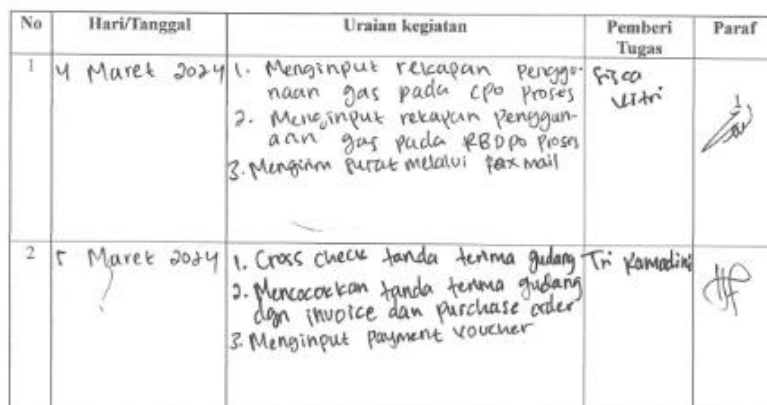 No Hari/Tanggal Uraian kegiatan Pemberi Tugas Paraf
1 4 Maret 2024 1. Menginput rekapan penggu-
naan gas pada CPO Proses
2. Menginput rekapan penggun-
aan gas pada RBDPO Proses
3. Mengirim surat melalui fax mail
Fisca
Vitri
2 5 Maret 2024 1. Cross check tanda terima gudang
2. Mencocokkan tanda terima gudang
dgn invoice dan purchase order
3. Menginput payment voucher
Tri Ramadini